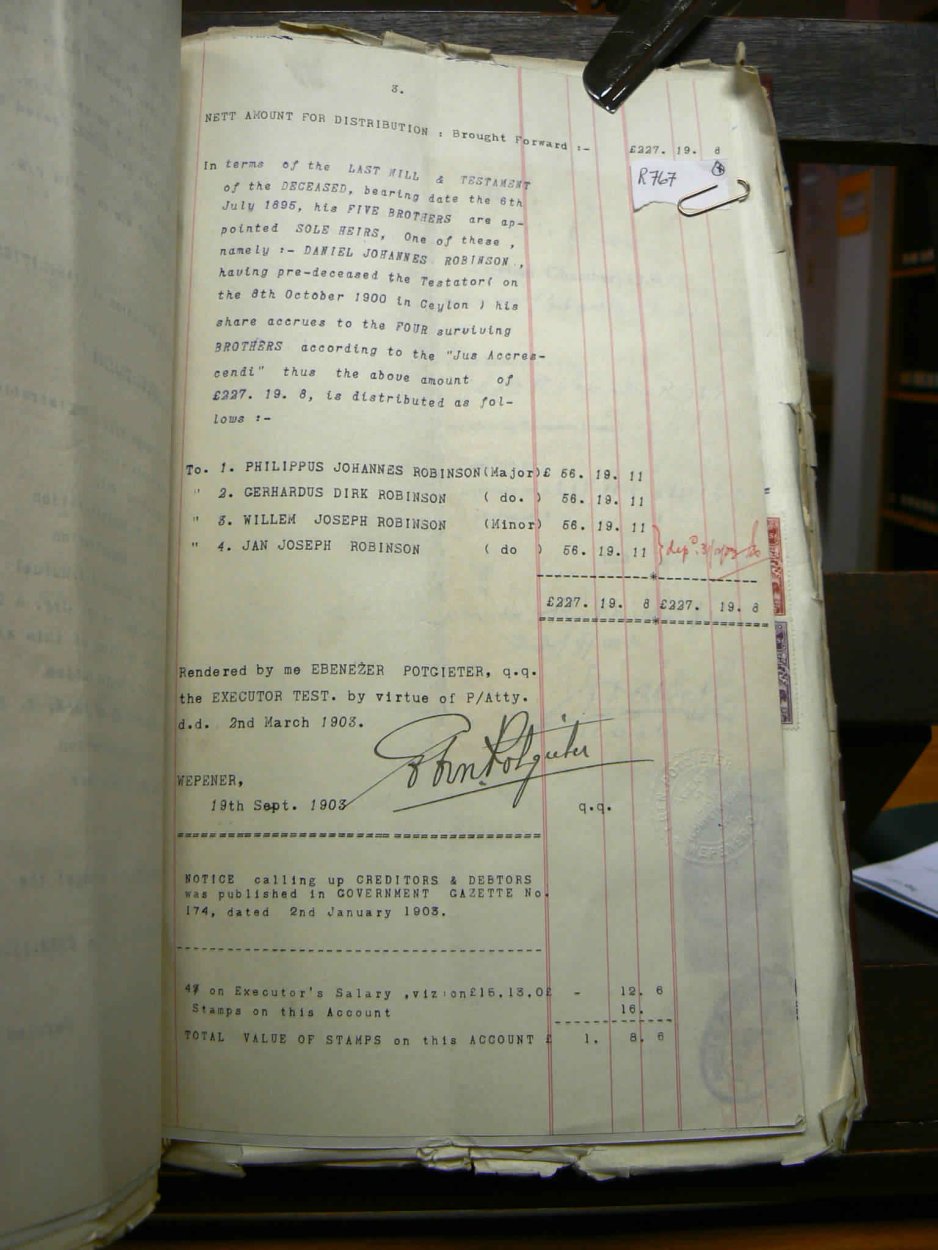 3.
NETT AMOUNT FOR DISTRIBUTION : Brought Forward :- £227. 19. 8
R767
In terms of the LAST WILL & TESTAMENT
of the DECEASED, bearing date the 6th
July 1895, his FIVE BROTHERS are ap-
pointed SOLE HEIRS, One of these ,
namely :- DANIEL JOHANNES ROBINSON ,
having pre-deceased the Testator( on
the 8th October 1900 in Ceylon ) his
share accrues to the FOUR surviving
BROTHERS according to the "Jus Accres-
cendi" thus the above amount of
£227. 19. 8, is distributed as fol-
lows :-
To. 1. PHILIPPUS JOHANNES ROBINSON(Major)£ 56. 19. 11
" 2. GERHARDUS DIRK ROBINSON ( do. ) 56. 19. 11
" 3. WILLEM JOSEPH ROBINSON (Minor) 56. 19. 11
" 4. JAN JOSEPH ROBINSON ( do ) 56. 19. 11
£227. 19. 8 £227. 19. 8
Rendered by me EBENEZER POTGIETER, q.q.
the EXECUTOR TEST. by virtue of P/Atty.
d.d. 2nd March 1903.
Eben. Potgieter
WEPENER,
19th Sept. 1903 q.q.
NOTICE calling up CREDITORS & DEBTORS
was published in GOVERNMENT GAZETTE No.
174, dated 2nd January 1903.
4% on Executor's Salary ,viz:on£15.13.0£ - 12. 6
Stamps on this Account 16.
TOTAL VALUE OF STAMPS on this ACCOUNT £ 1. 8. 6